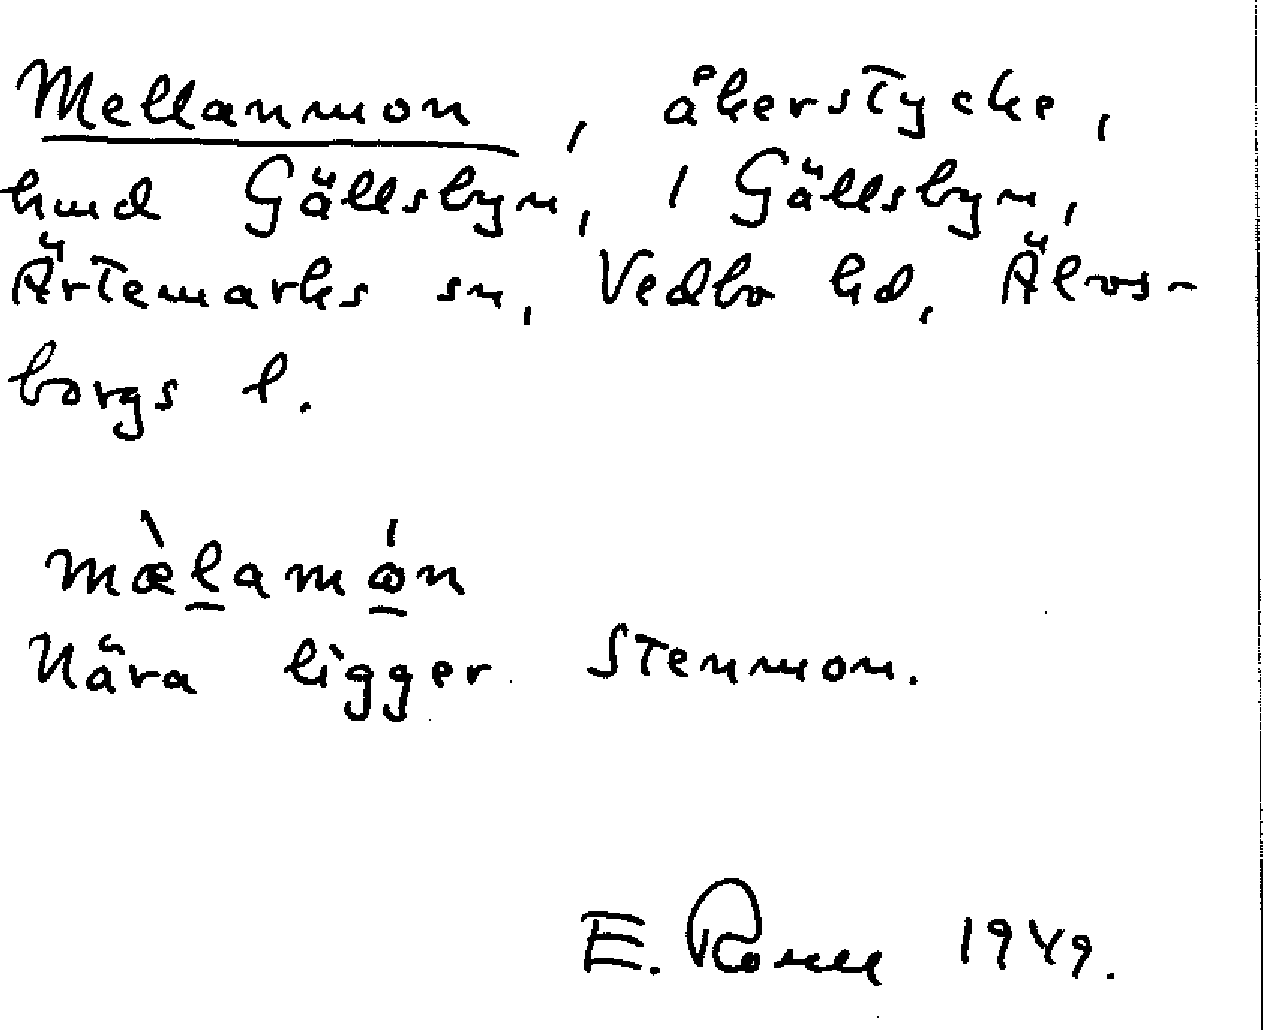 Mellanmon, åkerstycke,
hmd Gällsbyn, i Gällsbyn,
Ärtemarks sn, Vedbo hd, Älvs-
borgs l.
mæ̀l̲amó̲n
Nära ligger Stenmon.
E. 1949.